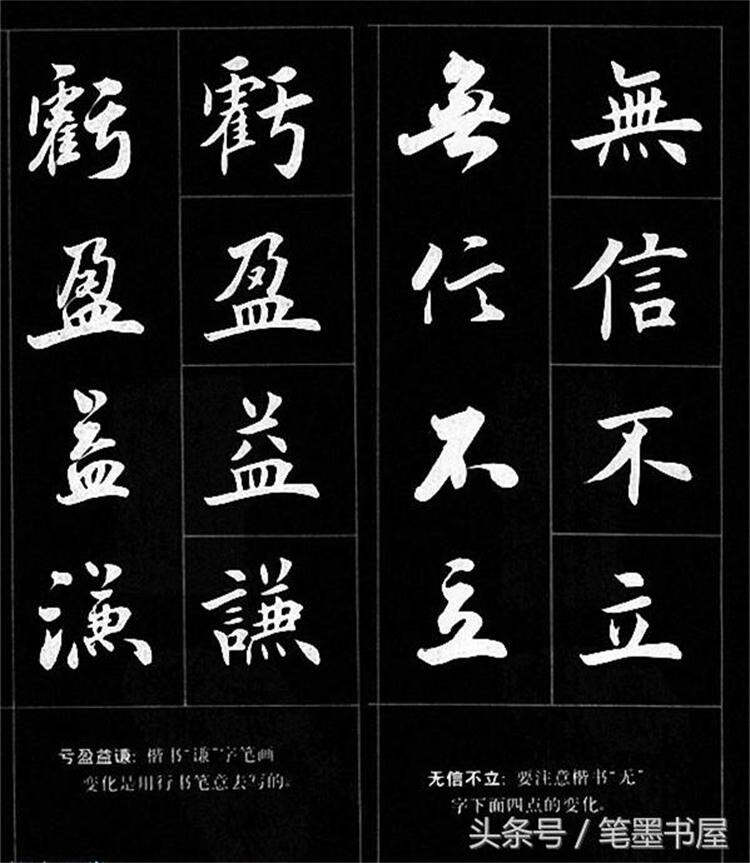 無信不立
無信不立
虧盈益謙
虧盈益謙
无信不立：要注意楷书“无”
字下面四点的变化。
亏盈益谦：楷书“谦”字笔画
变化是用行书笔意去写的。
头条号 / 笔墨书屋